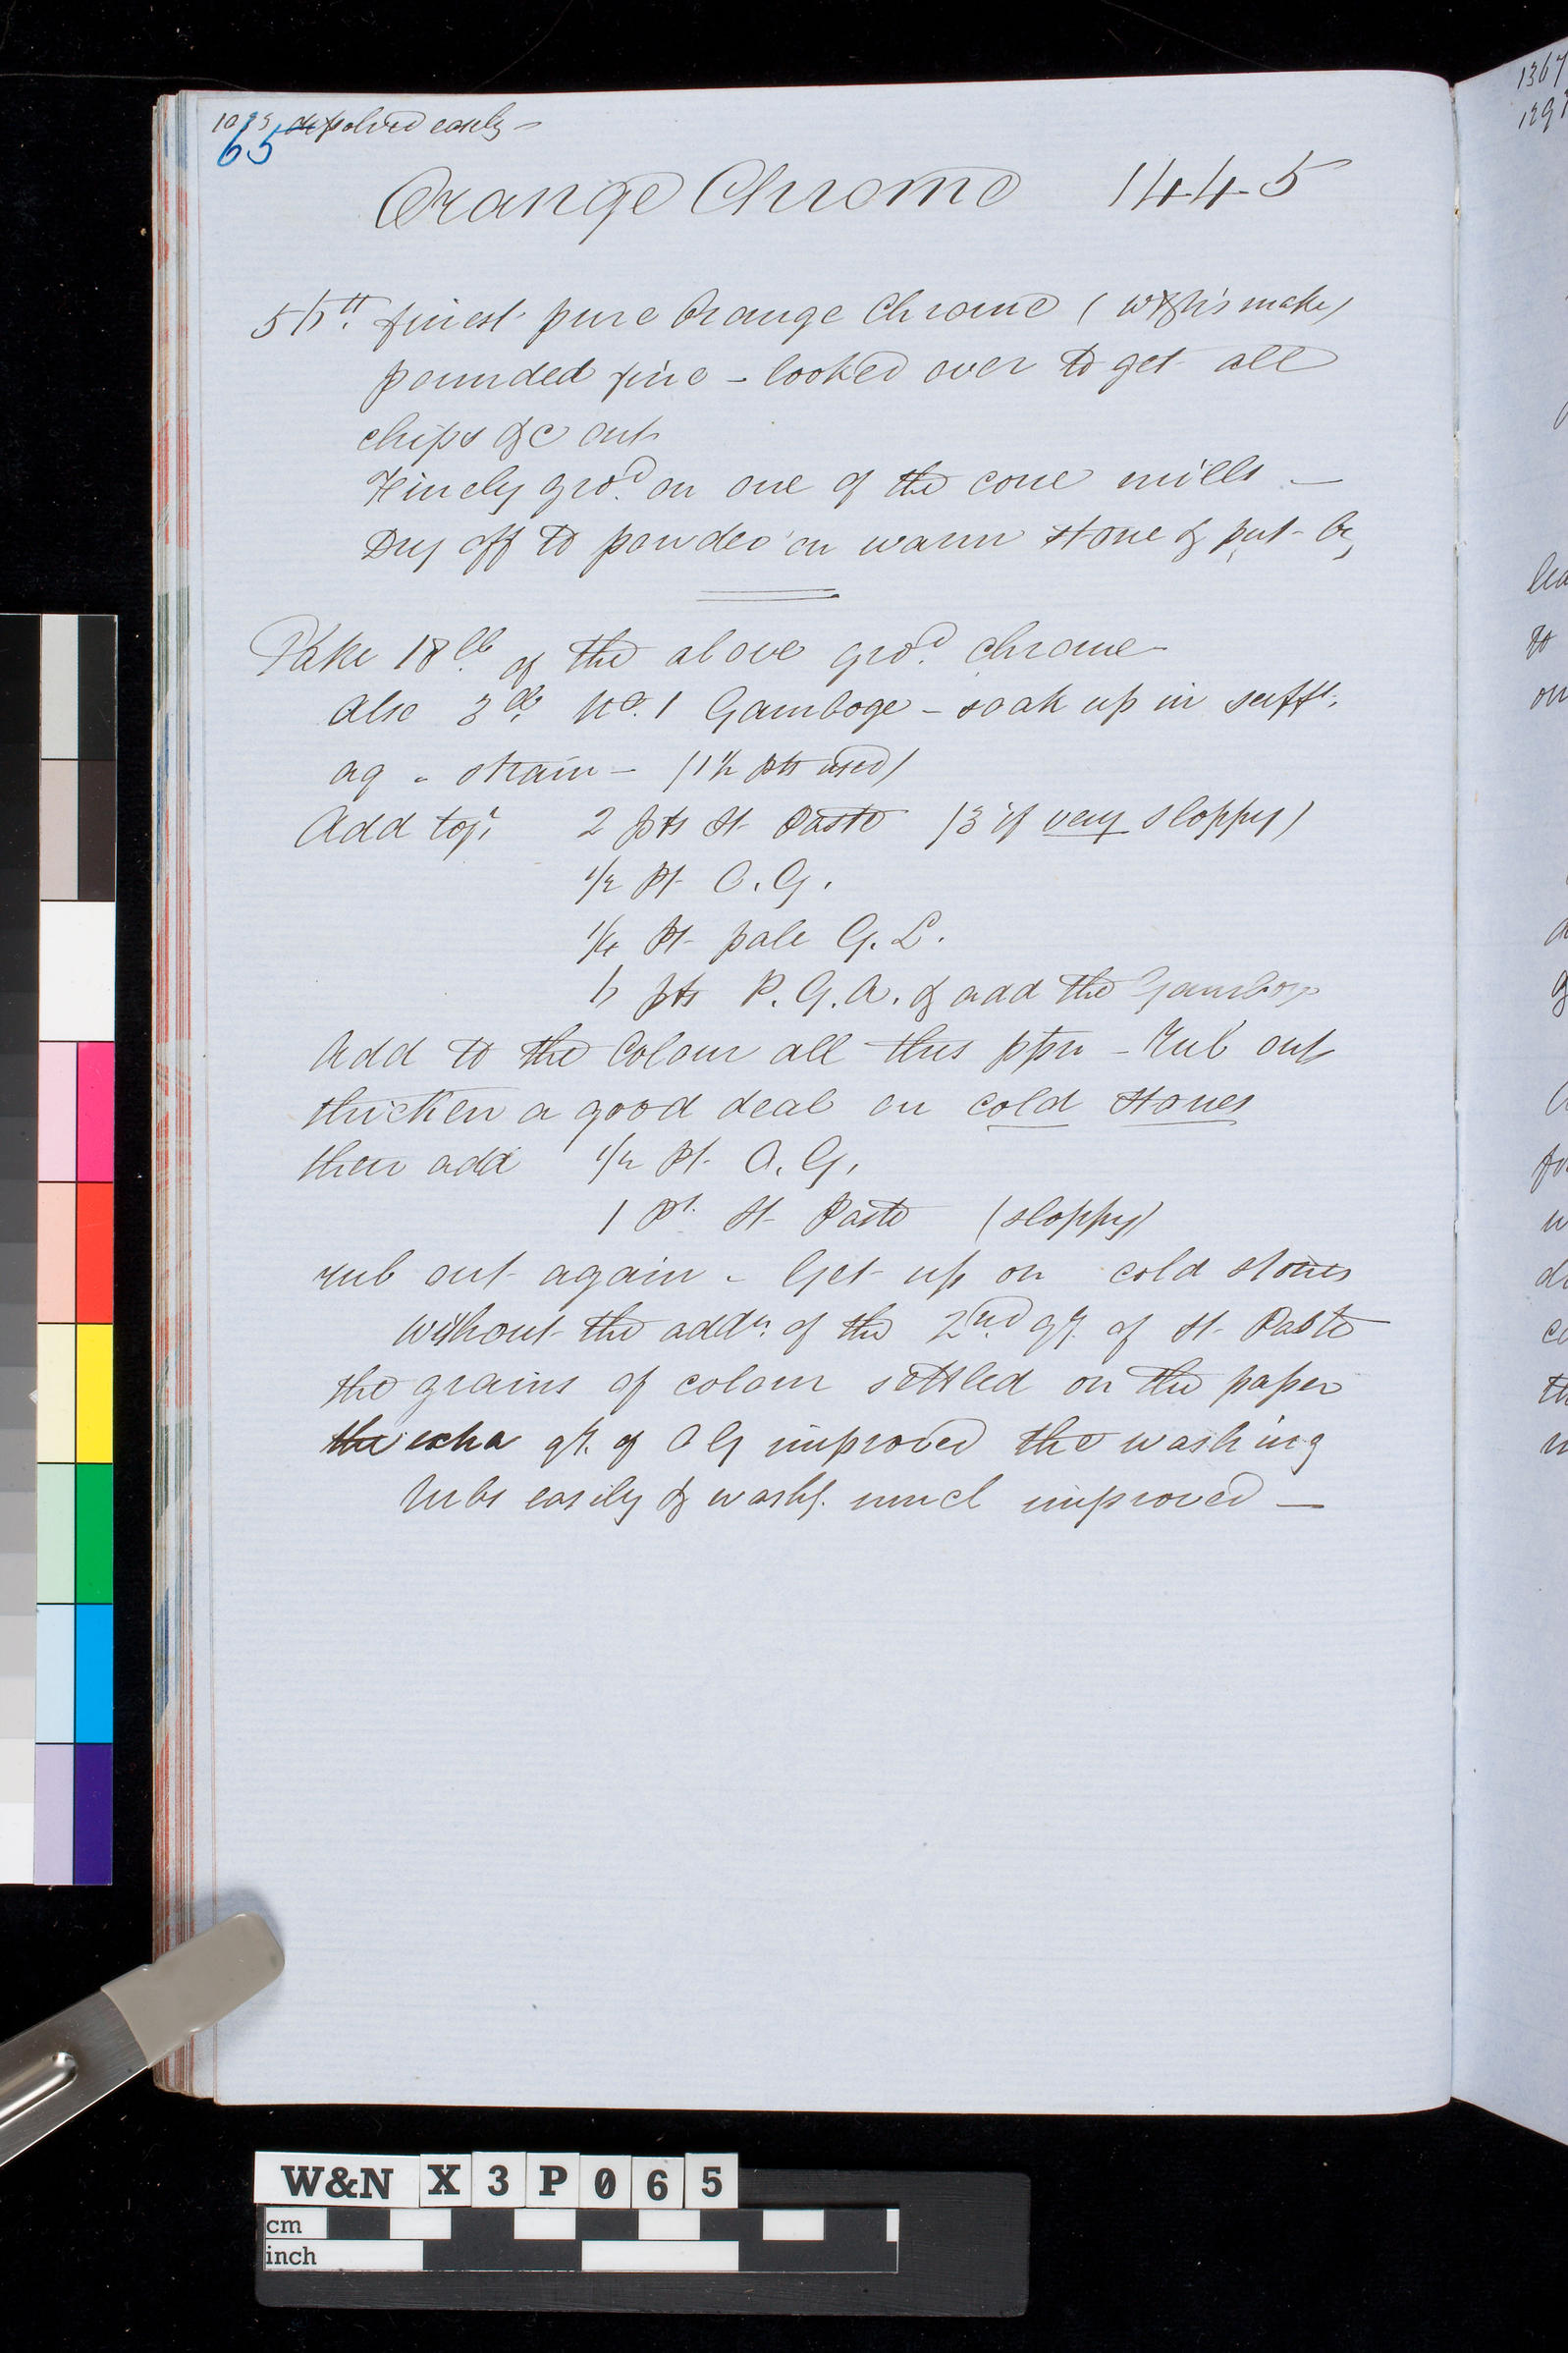 65 easily -
Orange Chrome 1445
finest pure Orange Chrome ( make)
pounded fine - looked over to get all
chips &c out
Finely gro.d on one of the cone mills -
Dry off to powder on warm stone & put by
Take 18 lb of the above gro.d chrome
Also 3 No. 1 Gamboge - soak up in sufft.
aq - strain - (1½ pts used)
Add togr 2 pts St Paste (3 if very sloppy)
½ Pt O.G.
¼ Pt pale G.L.
pts P.G.A. & add the Gamboge
Add to the Colour all this - Rub out
thicken a good deal on cold stones
then add ½ Pt O.G.
1 Pt St Paste (sloppy)
rub out again - Get up on cold stones
without the addn. of the 2nd qy. of St Paste
the grains of colour settled on the paper
the extra qy. of OG improved the washing
Rubs easily & washg. much improved -
1367
lea
to
on
W&N X 3 P 0 6 5
cm
inch